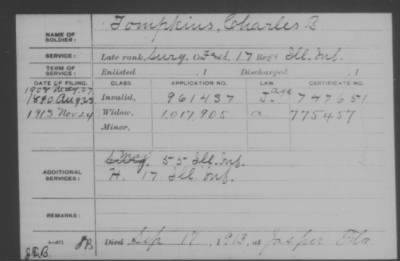 NAME OF SOLDIER: Tompkins, Charles B
SERVICE: Late rank, Surg, Co. F&S, 17 Reg't Ill. Inf.
TERM OF SERVICE: Enlisted , 1 Discharged , 1
DATE OF FILING. CLASS. APPLICATION NO. LAW. CERTIFICATE NO.
1908 May 27
1890 Aug 23 Invalid, 961437 747651
1913 Nov 24 Widow, 1,017,905 a 775457
Minor,
ADDITIONAL SERVICES: 55 Ill. Inf.
H. 17 Ill. Inf.
REMARKS:
Died Sep 17, 1913, at Jasper Fla